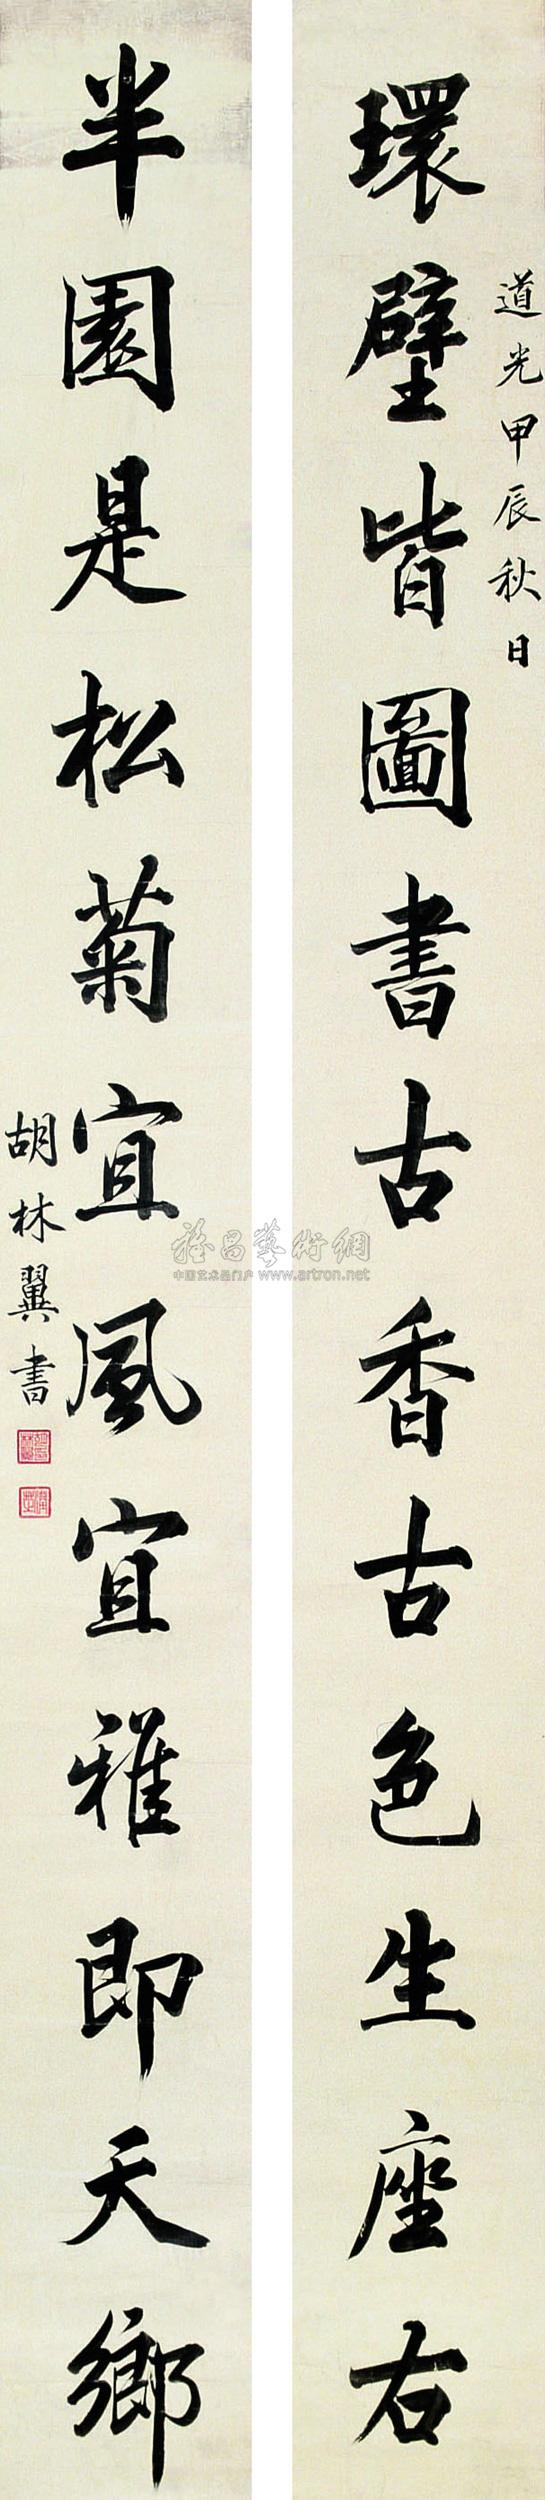 道光甲辰秋日
環壁皆圖書古香古色生座右
半園是松菊宜風宜雅即天鄉
胡林翼書
雅昌藝術網
中国艺术品门户 www.artron.net